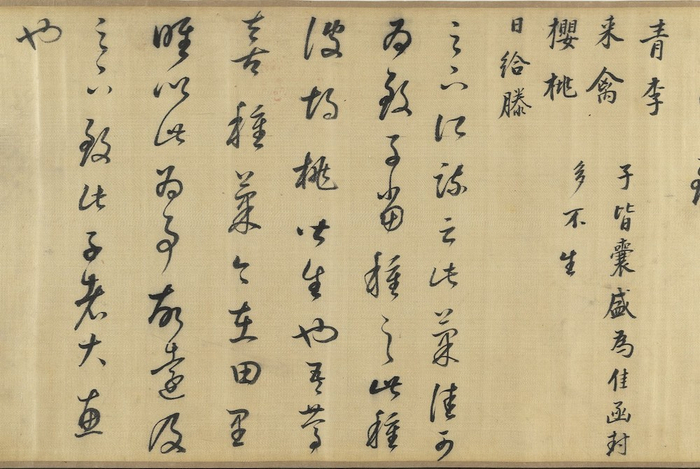 青李
来禽
櫻桃
日給滕
子皆囊盛為佳函封
多不生
足下所疏云此菓佳可
為致子當種之此種
彼胡桃皆生也吾篤
喜種菓今在田里
唯以此為事故遠及
足下致此子者大惠
也